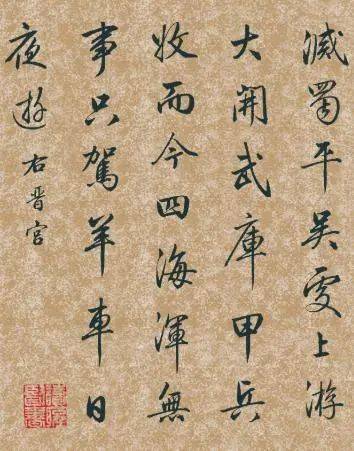 滅蜀平吳上游
大開武庫甲兵
收而今四海渾無
事只駕羊車日
夜遊
右晉宮